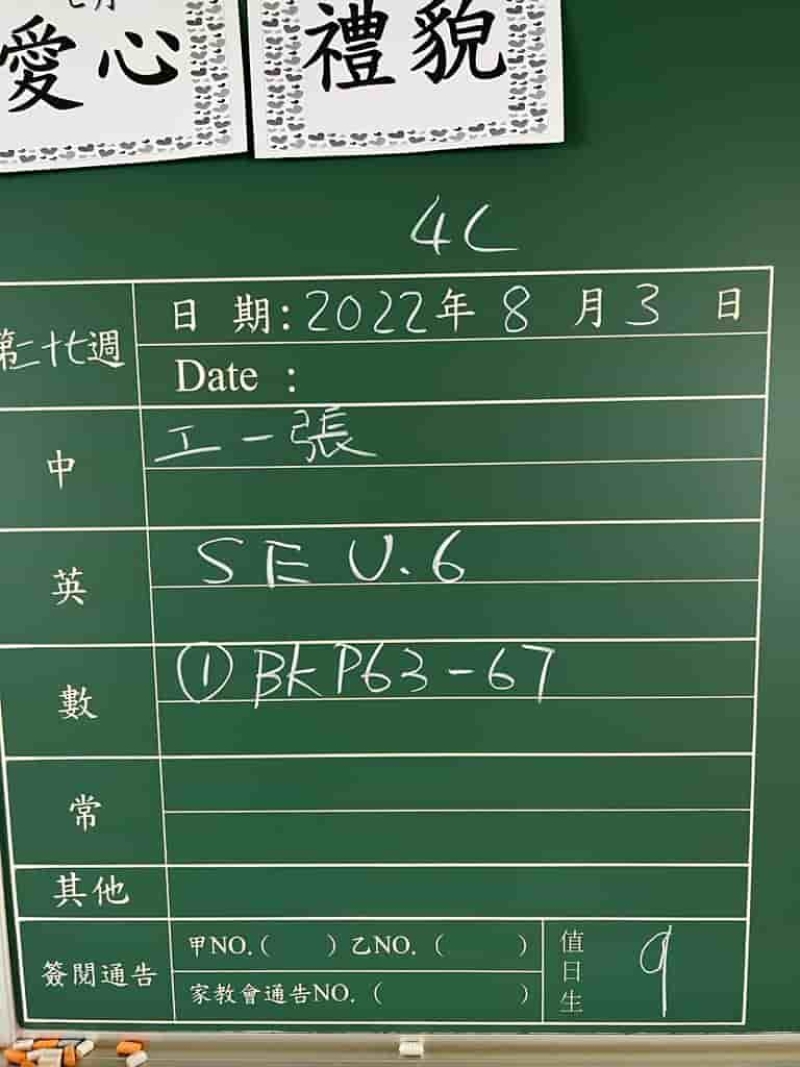 七月
愛心
禮貌
4C
第二十七週
日期:2022年8月3日
Date :
中
工一張
英
SE U.6
數
① BK P63-67
常
其他
簽閱通告
甲NO.( )乙NO.( )
家教會通告NO.( )
值日生
9